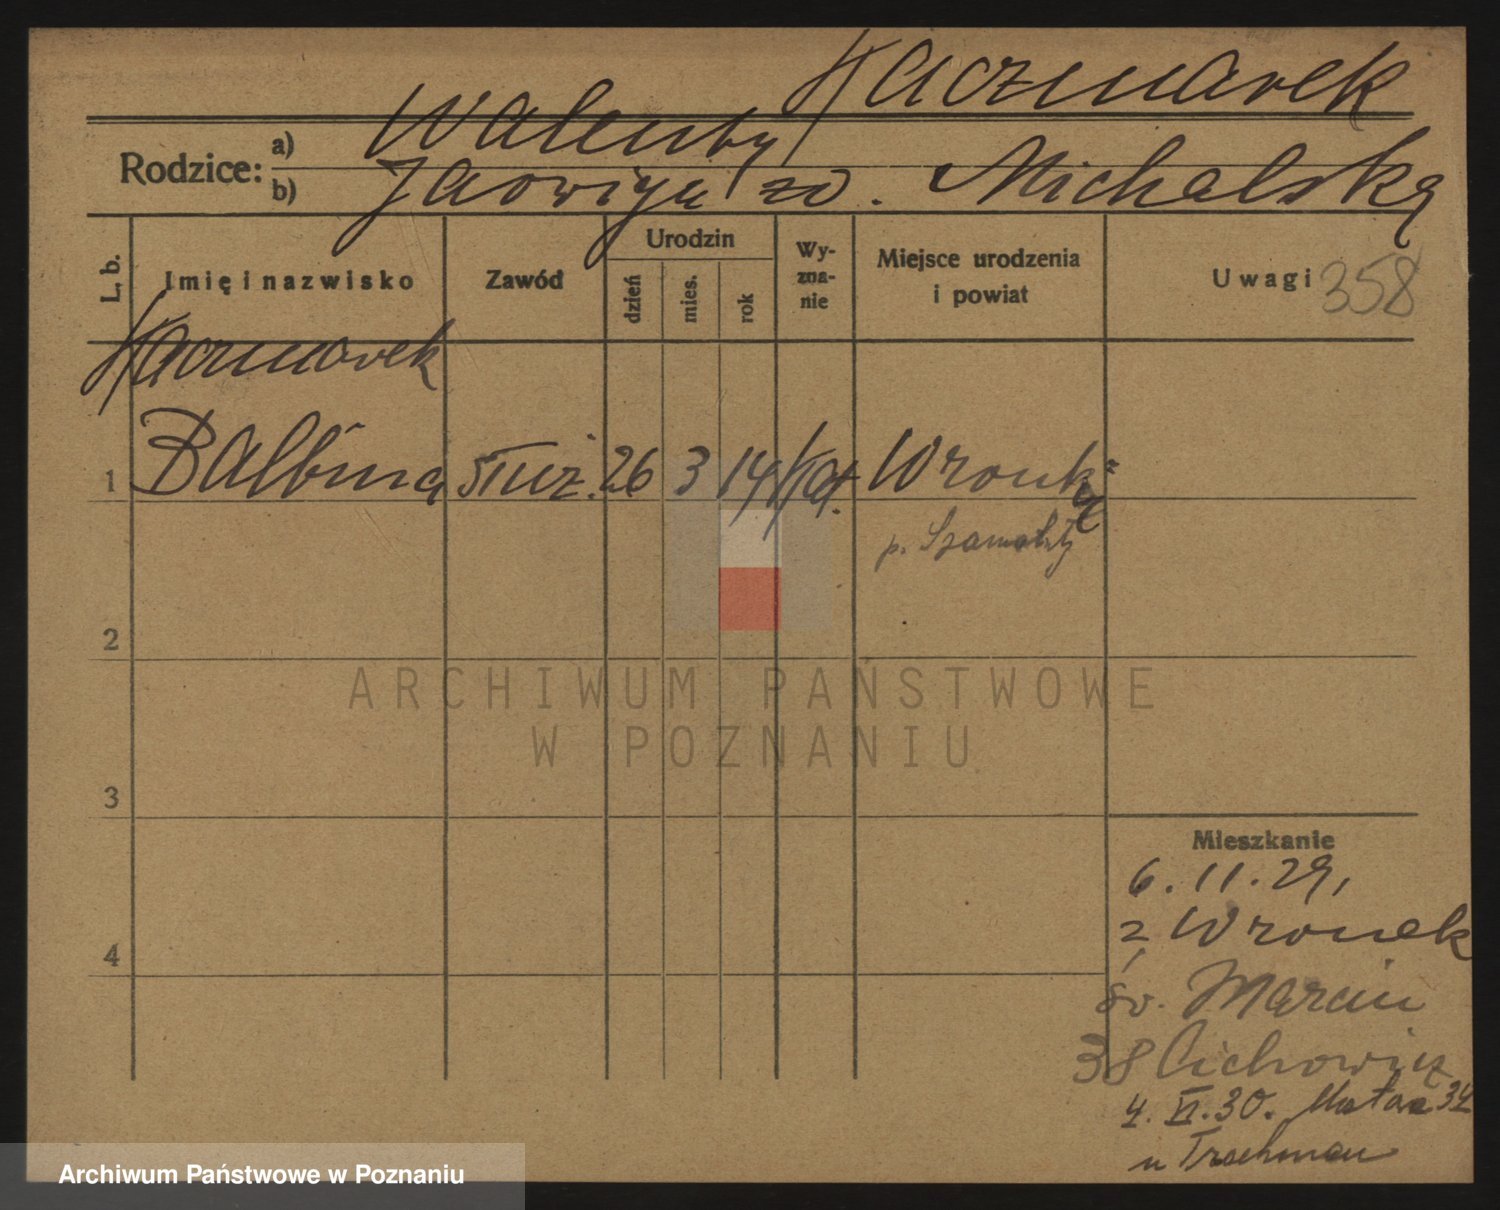 Kaczmarek
Rodzice: a) Walenty
b) Jadwiga zd. Michalska
L. b. Imię i nazwisko Zawód Urodzin dzień mies. rok Wy-zna-nie Miejsce urodzenia i powiat Uwagi 358
Kaczmarek
1 Balbina służ. 26 3 14 kat. Wronki
p. Szamotuły
2
ARCHIWUM PAŃSTWOWE
W POZNANIU
3
Mieszkanie
6. 11. 29,
z Wronek
4
św. Marcin
38 Cichowicz
4. VI. 30. 34
u
Archiwum Państwowe w Poznaniu